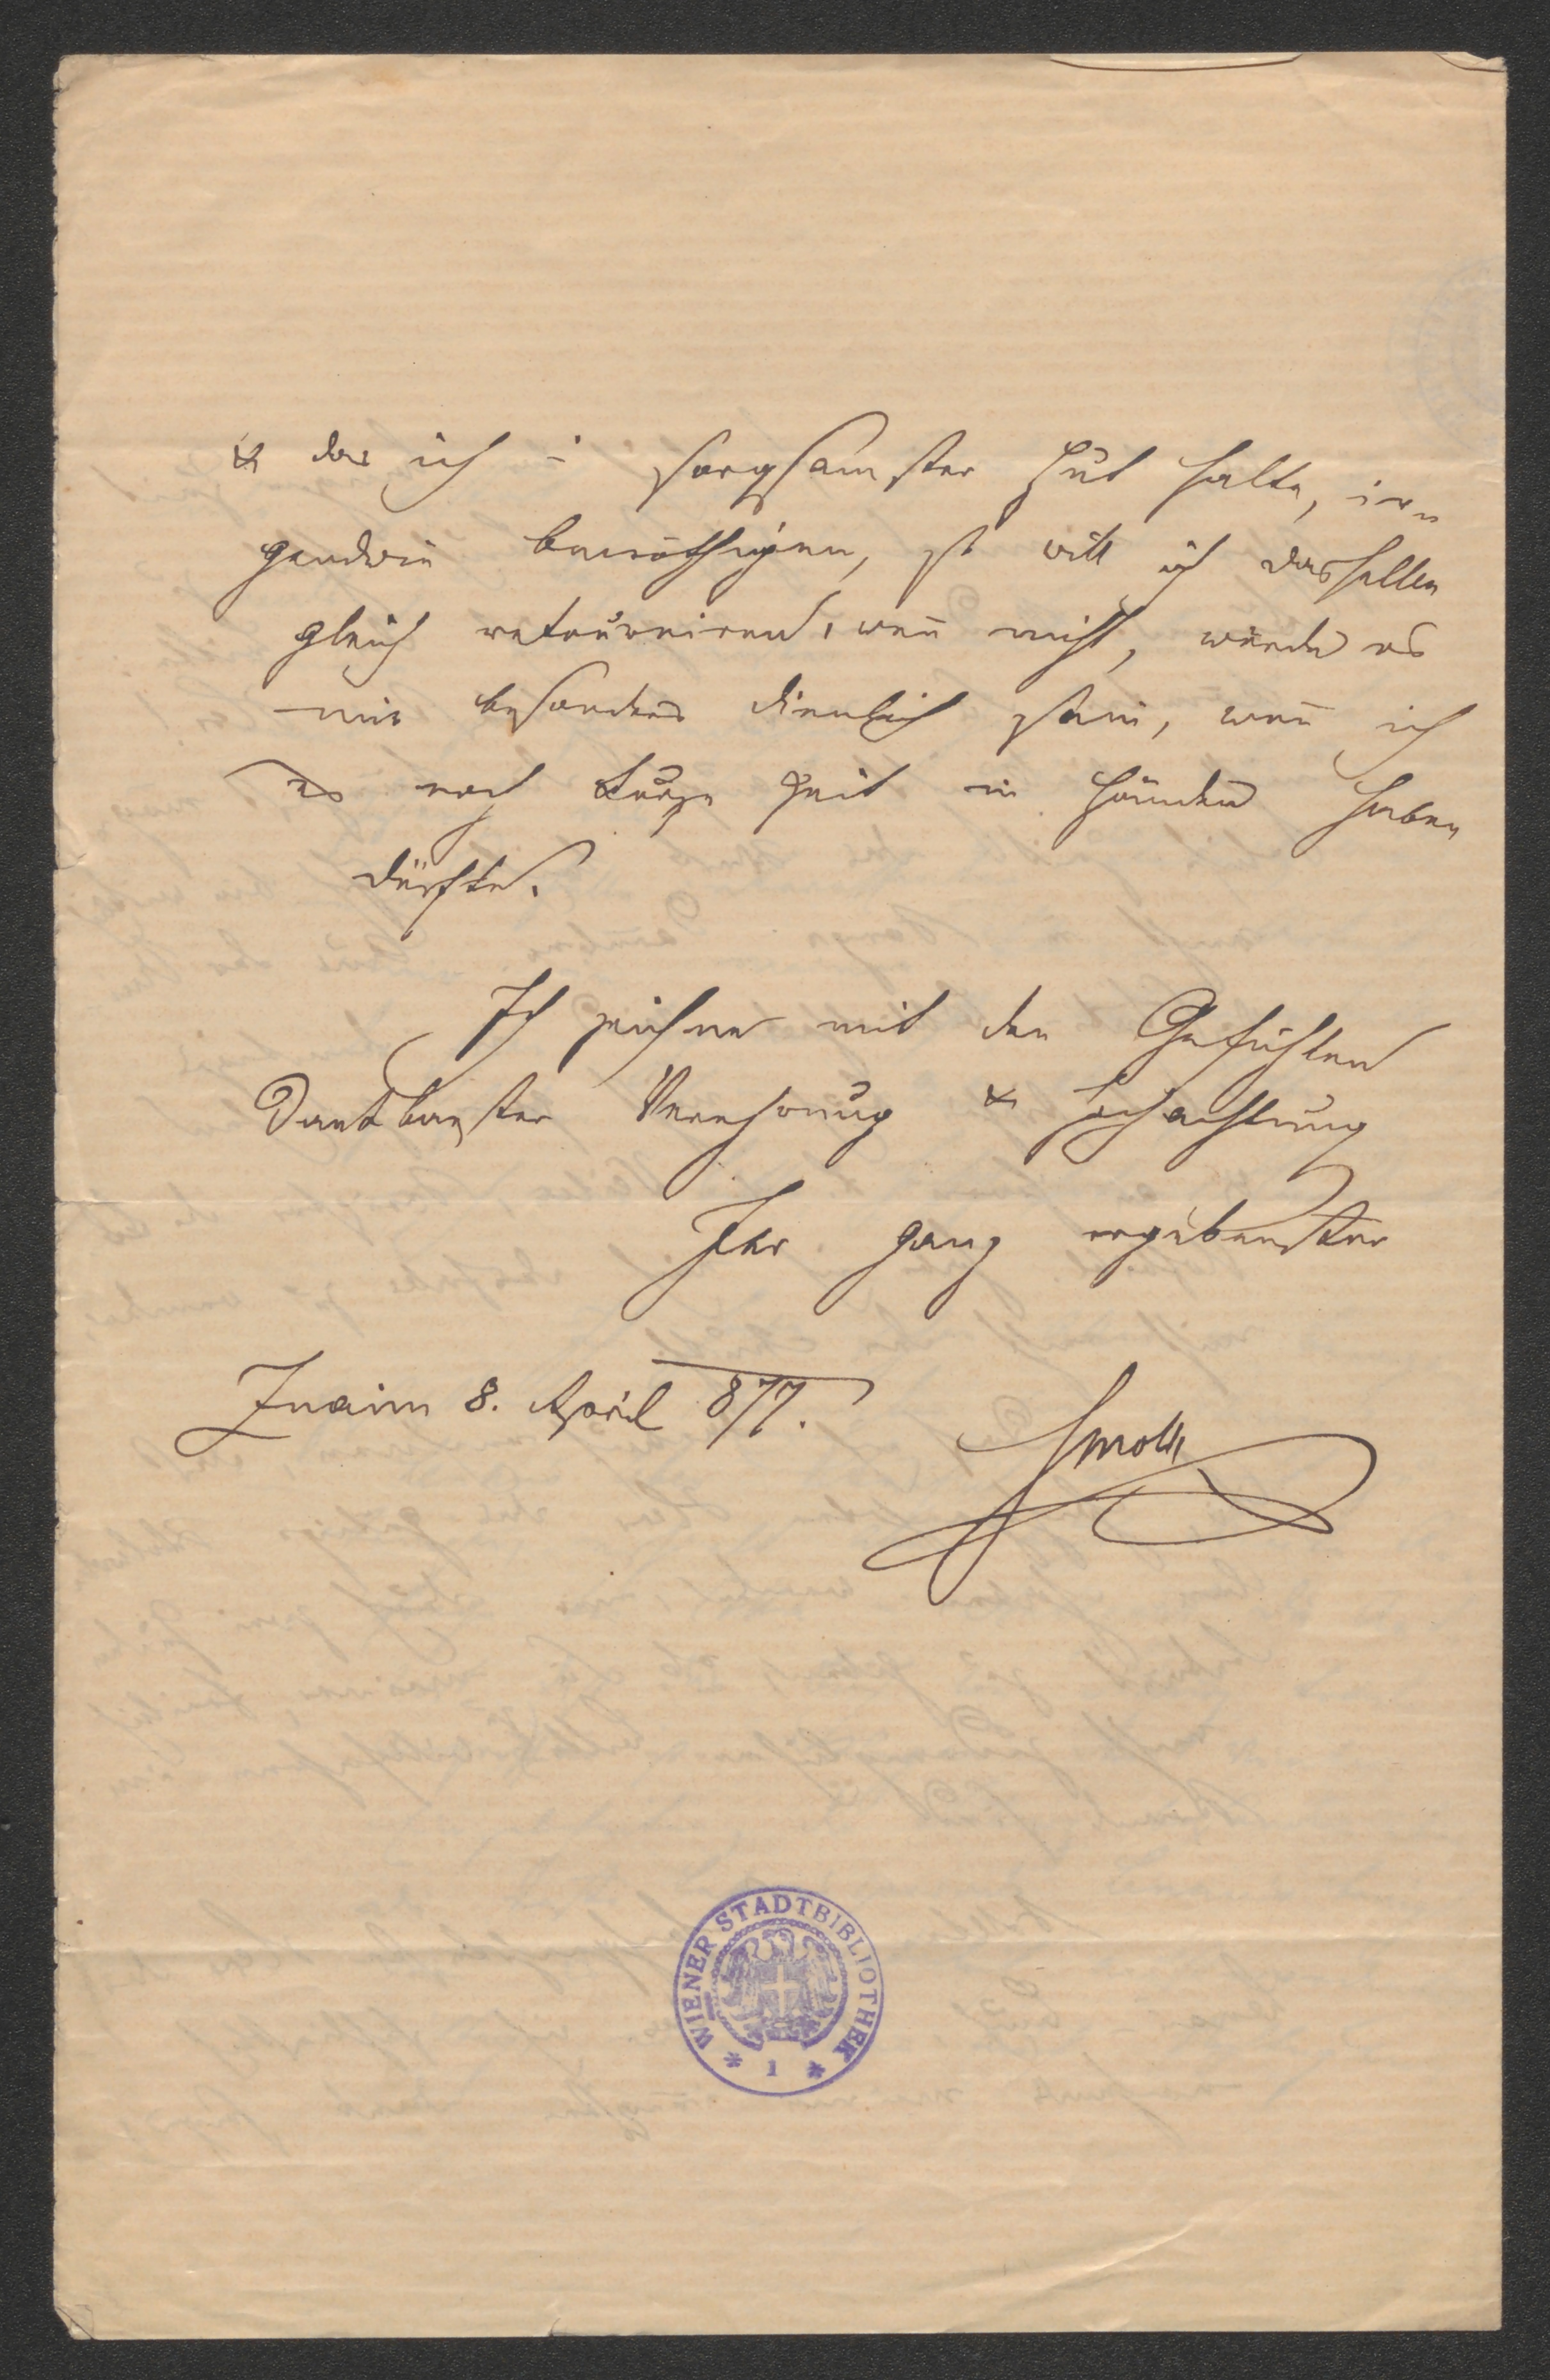 & das ich in sorgsamster Hut halte, irr
gendwie benöthigen, so will ich dasselbe
gleich retourniren, weñ nicht, würde es
mir besonders dienlich sein, weñ ich
es noch kurze Zeit in Händen haben
dürfte.
Ich zeichne mit den Gefühlen
Dankbarster Verehrung & Hochachtung
Ihr ganz ergebenster
Znaim 8. April 877.
Smolk
WIENER STADTBIBLIOTHEK
* 1 *